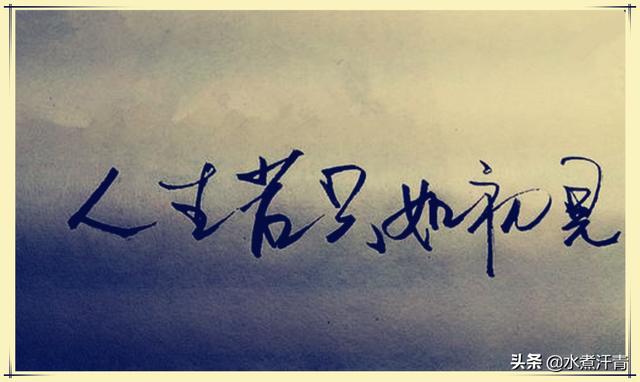 人生若只如初見
头条 @水煮汗青